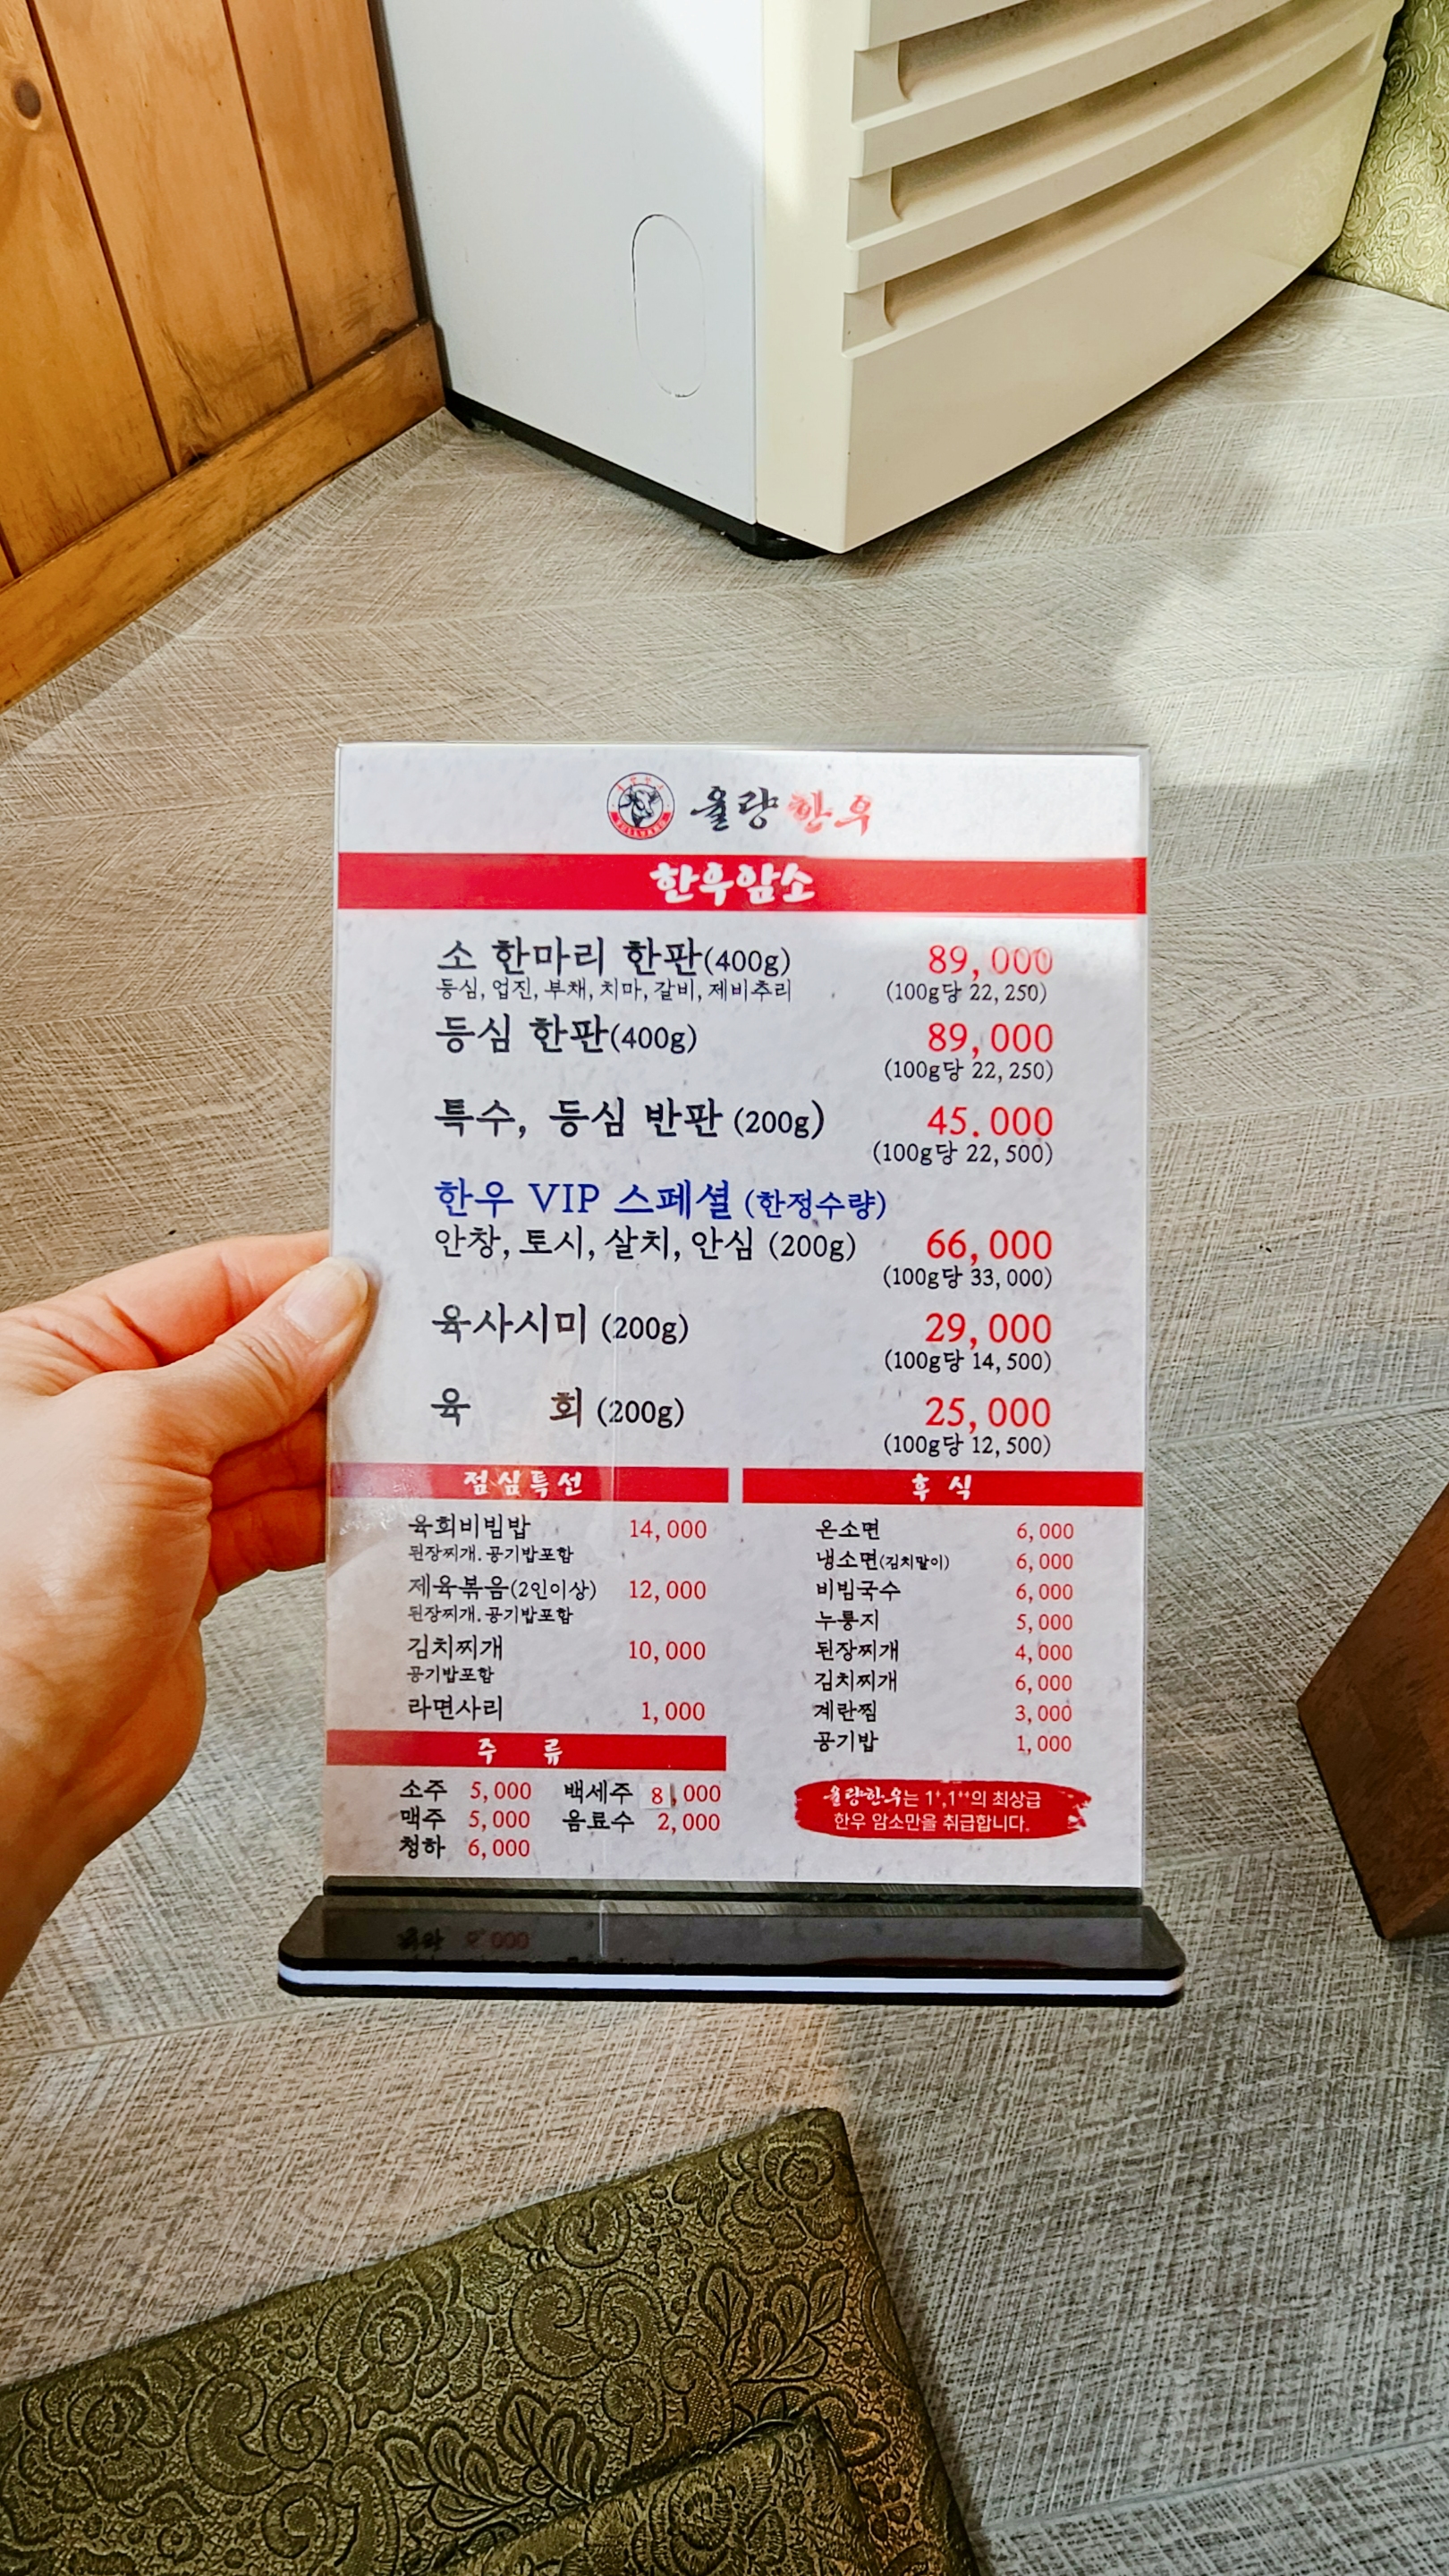 율량한우
한우암소
소 한마리 한판(400g) 89,000
등심, 업진, 부채, 치마, 갈비, 제비추리 (100g당 22,250)
등심 한판(400g) 89,000
(100g당 22,250)
특수, 등심 반판 (200g) 45.000
(100g당 22,500)
한우 VIP 스페셜 (한정수량)
안창, 토시, 살치, 안심 (200g) 66,000
(100g당 33,000)
육사시미 (200g) 29,000
(100g당 14,500)
육 회 (200g) 25,000
(100g당 12,500)
점심특선
육회비빔밥 14,000
된장찌개.공기밥포함
제육볶음(2인이상) 12,000
된장찌개.공기밥포함
김치찌개 10,000
공기밥포함
라면사리 1,000
주 류
소주 5,000 백세주 8,000
맥주 5,000 음료수 2,000
청하 6,000
후 식
온소면 6,000
냉소면(김치말이) 6,000
비빔국수 6,000
누룽지 5,000
된장찌개 4,000
김치찌개 6,000
계란찜 3,000
공기밥 1,000
율량한우는 1⁺,1⁺⁺의 최상급
한우 암소만을 취급합니다.